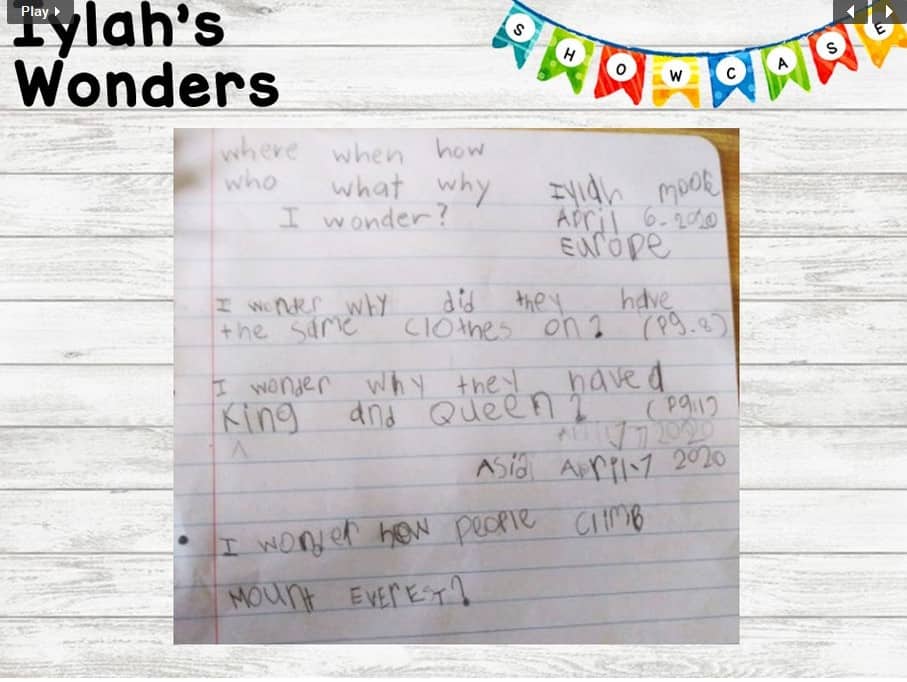 Play
Iylah's
Wonders
SHOWCASE
where when how
who what why
I wonder?
Iylah
April 6-2020
Europe
I wonder why did they have
the same clothes on? (pg.8)
I wonder why they haved
King and Queen? (pg.11)
Asia April-7 2020
I wonder how people climb
Mount Everest?